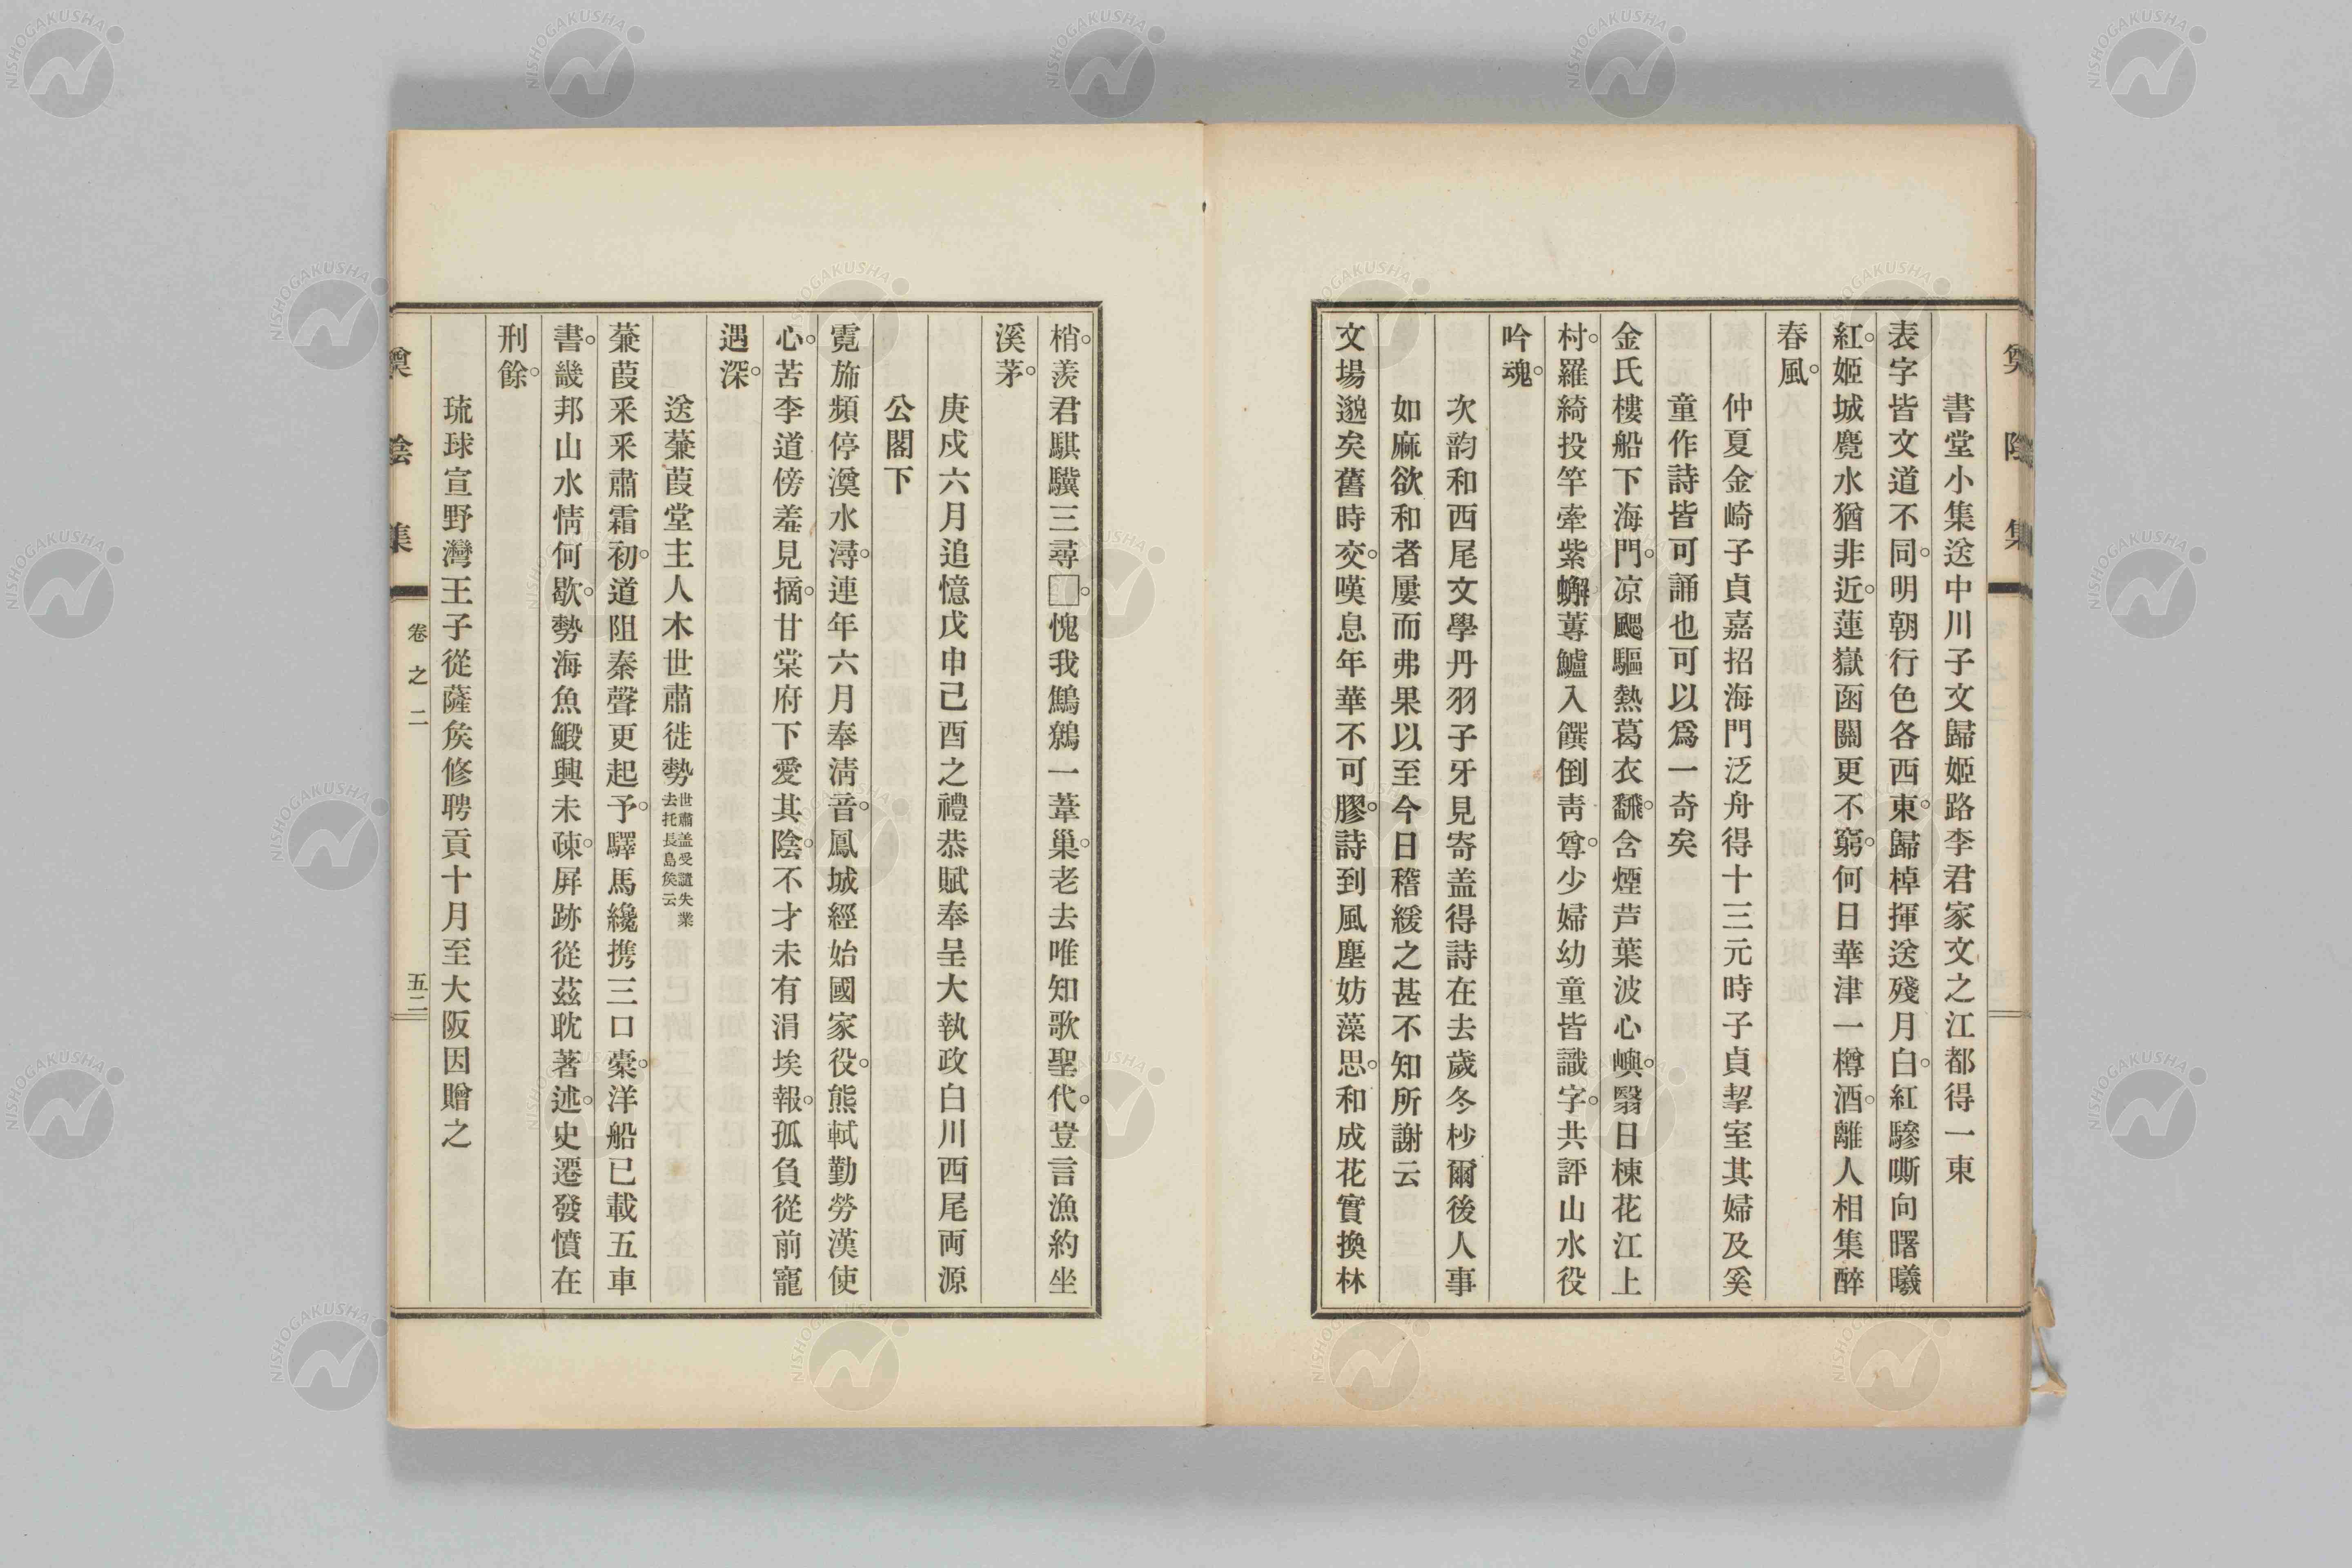 奠陰集
書堂小集送中川子文歸姬路李君家文之江都得一東
表字皆文道不同。明朝行色各西東。歸棹揮送殘月白。紅驂嘶向曙曦
紅。姬城覺水猶非近。蓮嶽函關更不窮。何日華津一樽酒。離人相集醉
春風。
仲夏金崎子貞嘉招海門泛舟得十三元時子貞挈室其婦及奚
童作詩皆可誦也可以爲一奇矣
金氏樓船下海門。凉颸驅熱葛衣飜。含煙芦葉波心嶼。翳日楝花江上
村。羅綺投竿牽紫蠏。蓴鱸入饌倒靑尊。少婦幼童皆識字。共評山水役
吟魂。
次韵和西尾文學丹羽子牙見寄盖得詩在去歲冬杪爾後人事
如麻欲和者屢而弗果以至今日稽緩之甚不知所謝云
文場邈矣舊時交。嘆息年華不可膠。詩到風塵妨藻思。和成花實換林
梢。羨君騏驥三尋□。愧我鷦鷯一葦巢。老去唯知歌聖代。豈言漁約坐
溪茅。
庚戍六月追憶戊申己酉之禮恭賦奉呈大執政白川西尾両源
公閣下
霓斾頻停澳水潯。連年六月奉淸音。鳳城經始國家役。熊軾勤勞漢使
心。苦李道傍羞見摘。甘棠府下愛其陰。不才未有涓埃報。孤負從前寵
遇深。
送蒹葭堂主人木世肅徙勢
世肅盖受譴失業
去托長島矦云
蒹葭釆釆肅霜初。道阻秦聲更起予。驛馬纔携三口槖。洋船已載五車
書。畿邦山水情何歇。勢海魚鰕興未疎。屏跡從茲耽著述。史遷發憤在
刑餘。
琉球宣野灣王子從薩矦修聘貢十月至大阪因贈之
奠陰集
卷之二
五二